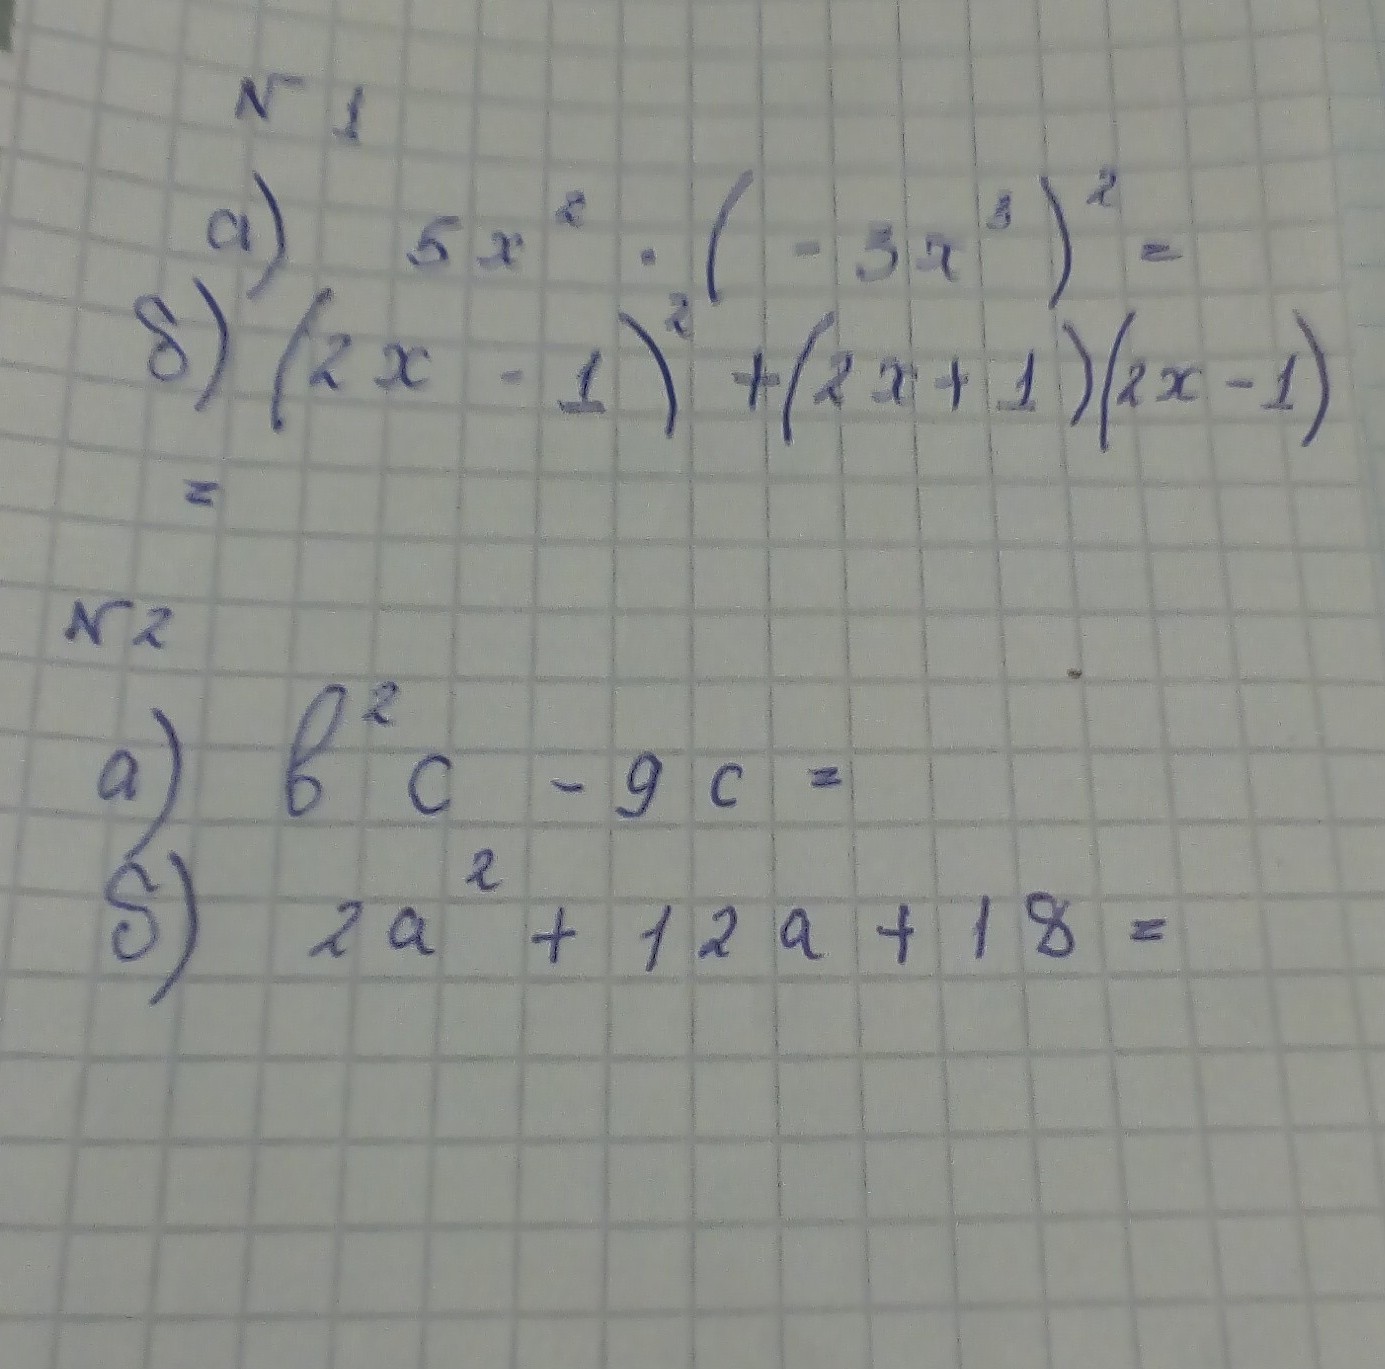 N 1
а) 5x² · (-3x³)² =
б) (2x - 1)² + (2x + 1)(2x - 1)
=
N 2
а) b²c - 9c =
б) 2a² + 12a + 18 =